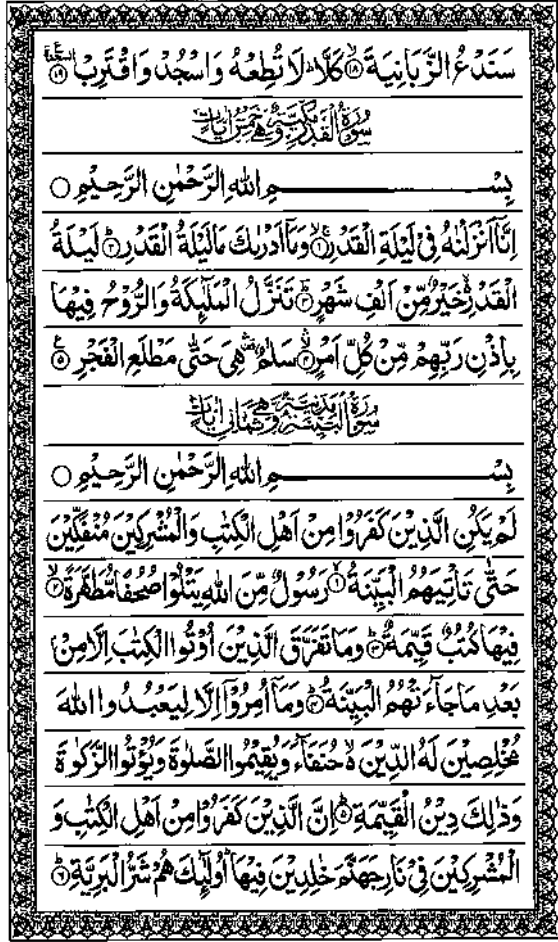 سَنَدْعُ الزَّبَانِيَةَ ۙ﴿۱۸﴾ كَلَّا ؕ لَا تُطِعْهُ وَاسْجُدْ وَاقْتَرِبْ ﴿۱۹﴾
سُوْرَةُ الْقَدْرِ مَكِّيَّةٌ وَّهِیَ خَمْسُ اٰیَاتٍ
بِسْمِ اللّٰهِ الرَّحْمٰنِ الرَّحِیْمِ
اِنَّاۤ اَنْزَلْنٰهُ فِیْ لَیْلَةِ الْقَدْرِ ۚۖ﴿۱﴾ وَمَاۤ اَدْرٰىكَ مَا لَیْلَةُ الْقَدْرِ ؕ﴿۲﴾ لَیْلَةُ
الْقَدْرِ ۙ خَیْرٌ مِّنْ اَلْفِ شَهْرٍ ؕ﴿۳﴾ تَنَزَّلُ الْمَلٰٓئِكَةُ وَالرُّوْحُ فِیْهَا
بِاِذْنِ رَبِّهِمْ مِّنْ كُلِّ اَمْرٍ ۙ﴿۴﴾ سَلٰمٌ ۛ هِیَ حَتّٰی مَطْلَعِ الْفَجْرِ ﴿۵﴾
سُوْرَةُ الْبَیِّنَةِ مَدَنِیَّةٌ وَّهِیَ ثَمَانُ اٰیَاتٍ
بِسْمِ اللّٰهِ الرَّحْمٰنِ الرَّحِیْمِ
لَمْ یَكُنِ الَّذِیْنَ كَفَرُوْا مِنْ اَهْلِ الْكِتٰبِ وَالْمُشْرِكِیْنَ مُنْفَكِّیْنَ
حَتّٰی تَاْتِیَهُمُ الْبَیِّنَةُ ۙ﴿۱﴾ رَسُوْلٌ مِّنَ اللّٰهِ یَتْلُوْا صُحُفًا مُّطَهَّرَةً ۙ﴿۲﴾
فِیْهَا كُتُبٌ قَیِّمَةٌ ؕ﴿۳﴾ وَمَا تَفَرَّقَ الَّذِیْنَ اُوْتُوا الْكِتٰبَ اِلَّا مِنْۢ
بَعْدِ مَا جَآءَتْهُمُ الْبَیِّنَةُ ؕ﴿۴﴾ وَمَاۤ اُمِرُوْۤا اِلَّا لِیَعْبُدُوا اللّٰهَ
مُخْلِصِیْنَ لَهُ الدِّیْنَ ۙ۬ حُنَفَآءَ وَیُقِیْمُوا الصَّلٰوةَ وَیُؤْتُوا الزَّكٰوةَ
وَذٰلِكَ دِیْنُ الْقَیِّمَةِ ؕ﴿۵﴾ اِنَّ الَّذِیْنَ كَفَرُوْا مِنْ اَهْلِ الْكِتٰبِ وَ
الْمُشْرِكِیْنَ فِیْ نَارِ جَهَنَّمَ خٰلِدِیْنَ فِیْهَا ؕ اُولٰٓئِكَ هُمْ شَرُّ الْبَرِیَّةِ ؕ﴿۶﴾